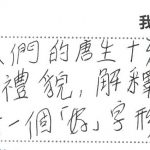 我
們的唐生十分
禮貌，解釋
一個「好」字形